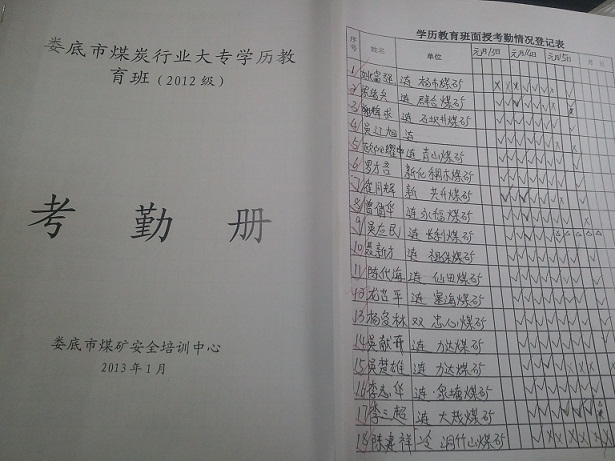 娄底市煤炭行业大专学历教
育班（2012级）
考勤册
娄底市煤矿安全培训中心
2013年1月
学历教育班面授考勤情况登记表
序号 姓名 单位 元月13日 元月14日 元月15日 月 日
1 涟 杨市煤矿
2 涟 群合煤矿
3 涟 石坝井煤矿
4 吴江旭 涟
5 涟 青山煤矿
6 罗才吾 新化 煤矿
7 新 共升煤矿
8 曾倩华 涟 永福煤矿
9 吴应民 涟 长利煤矿
10 聂新方 涟 祖保煤矿
11 陈代海 涟 仙田煤矿
12 涟 塞海煤矿
13 杨爱林 双 忠心煤矿
14 吴献开 涟 力达煤矿
15 吴楚雄 涟 力达煤矿
16 李志华 涟 泉塘煤矿
17 李三超 涟 大茂煤矿
18 陈嘉祥 冷 洞竹山煤矿